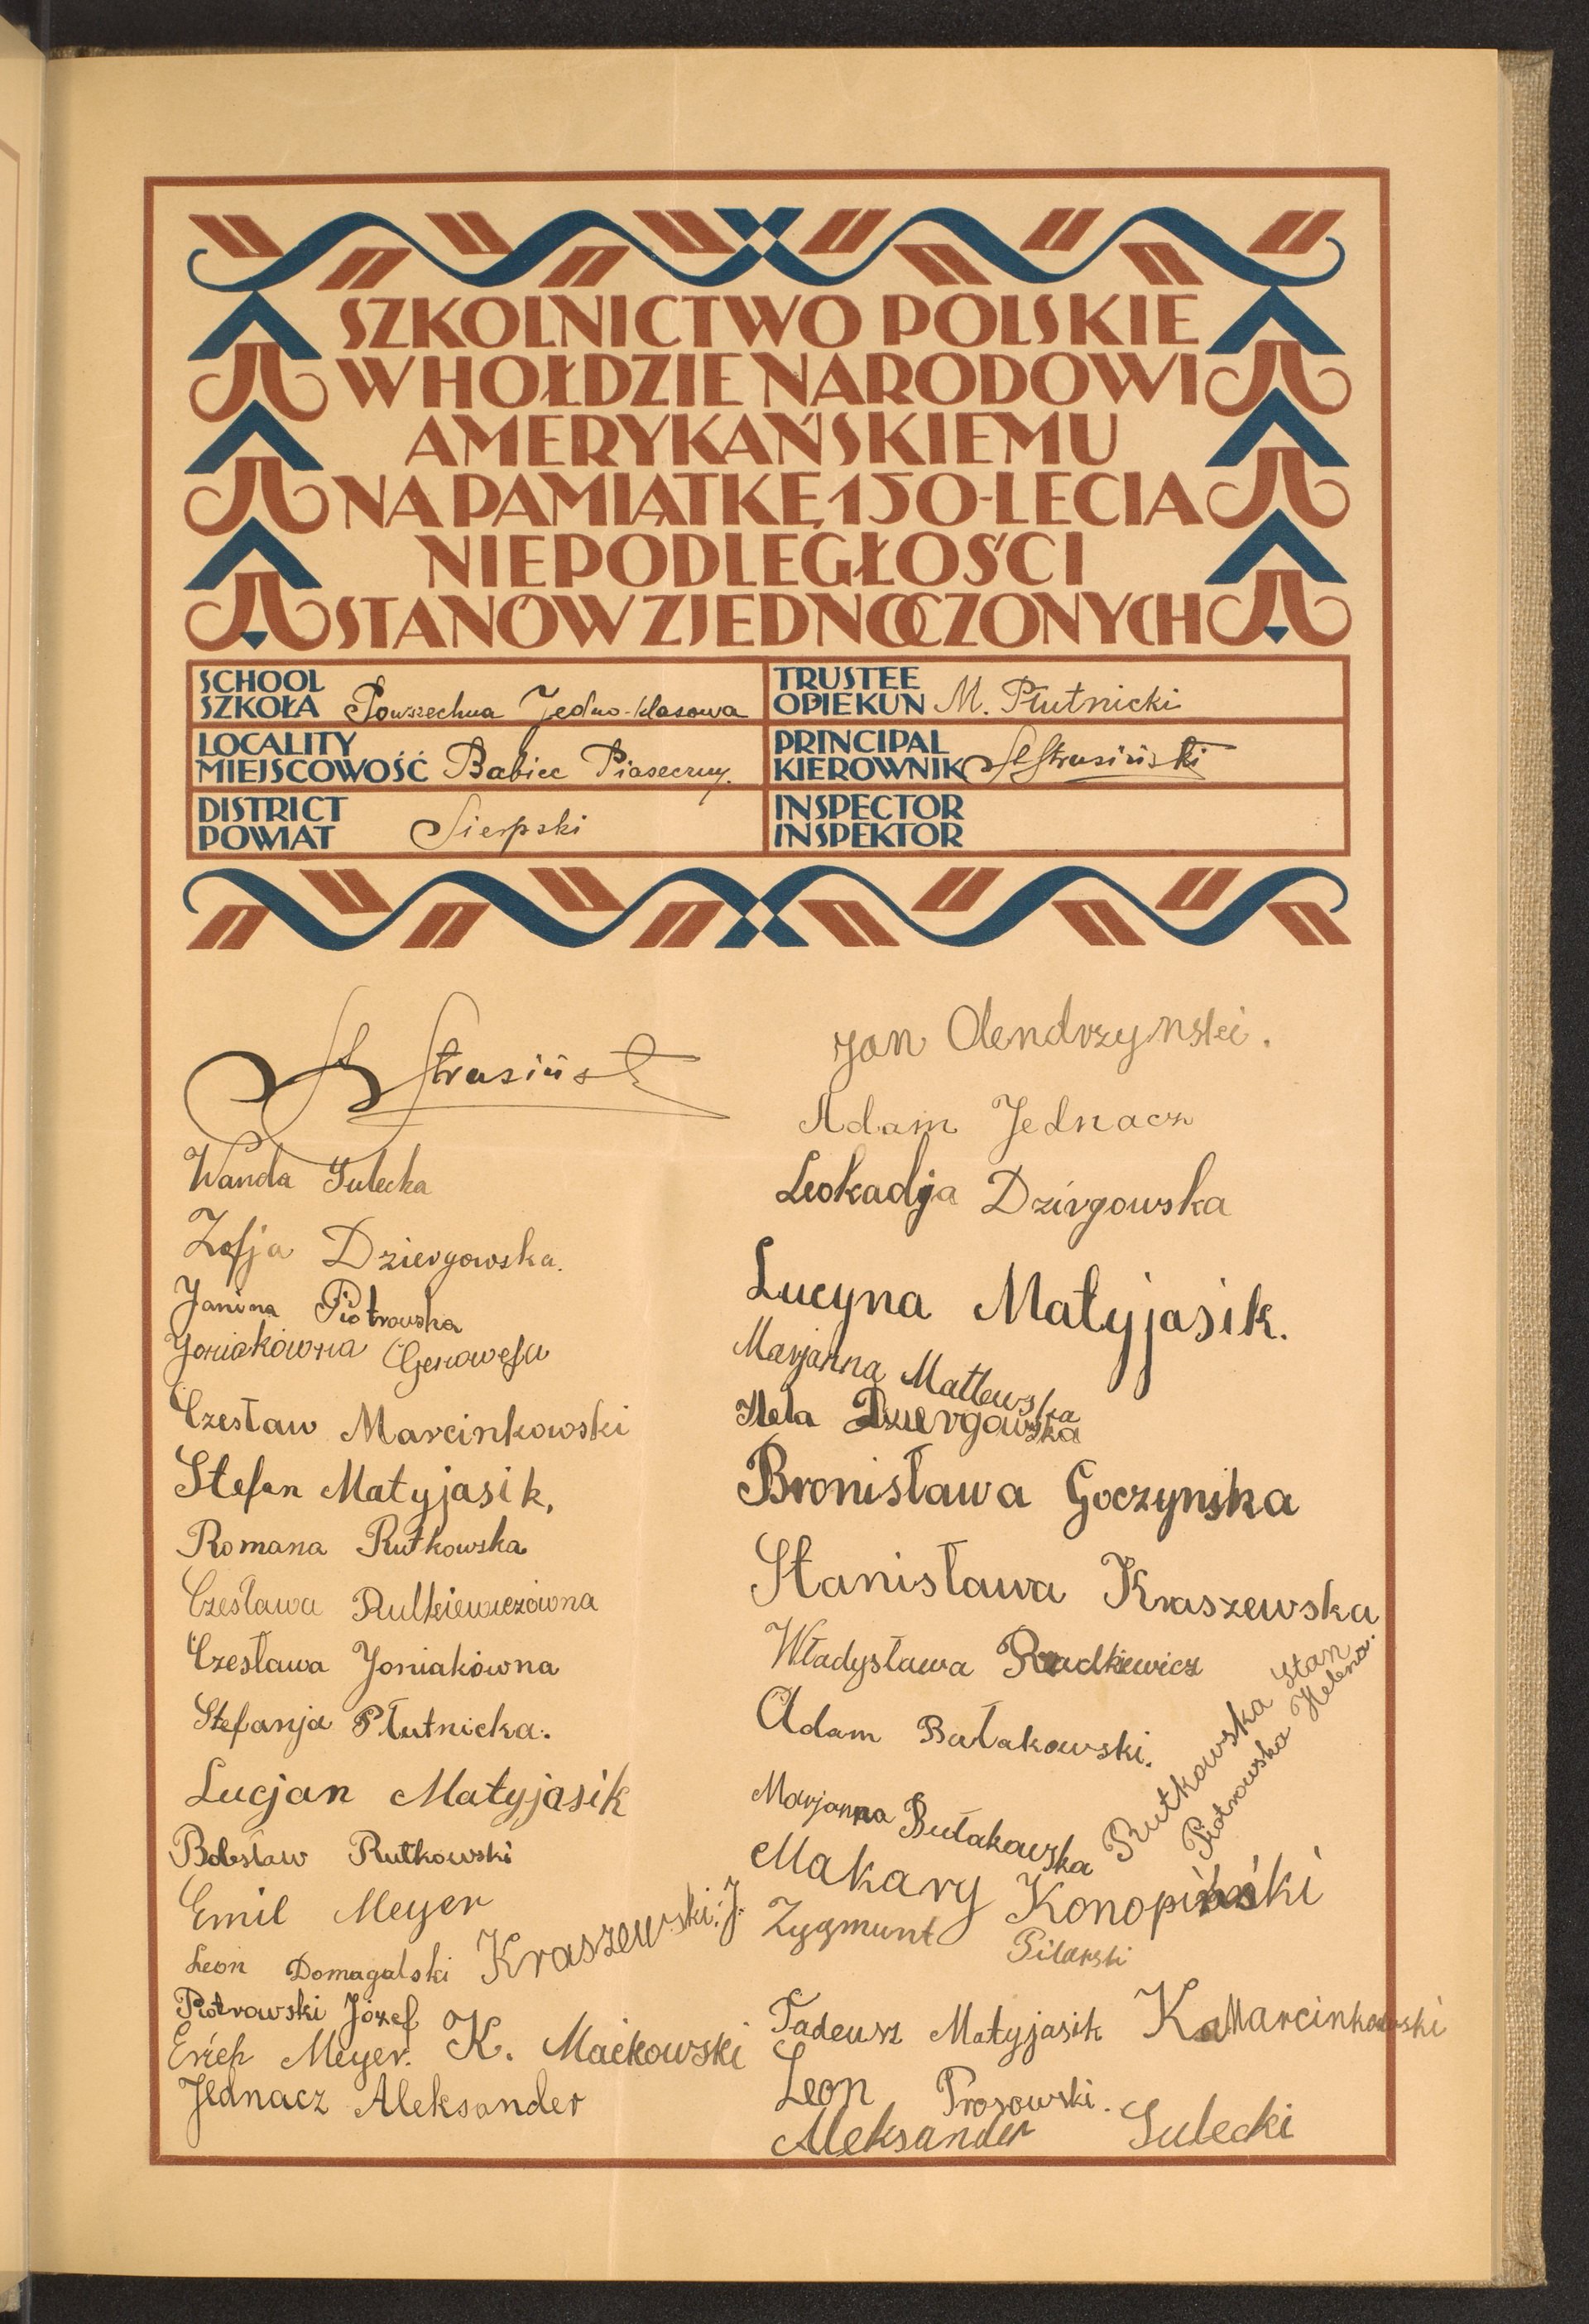 SZKOLNICTWO POLSKIE
W HOŁDZIE NARODOWI
AMERYKAŃSKIEMU
NA PAMIĄTKĘ 150-LECIA
NIEPODLEGŁOŚCI
STANÓW ZJEDNOCZONYCH
SCHOOL
SZKOŁA Powszechna Jedno-klasowa
TRUSTEE
OPIEKUN M. Płutnicki
LOCALITY
MIEJSCOWOŚĆ Babiec Piaseczny.
PRINCIPAL
KIEROWNIK St Strusiński
DISTRICT
POWIAT Sierpski
INSPECTOR
INSPEKTOR
St Strusiński
Wanda Sulecka
Zofja Dziergowska.
Janina Piotrowska
Joniakówna Genowefa
Czesław Marcinkowski
Stefan Matyjasik,
Romana Rutkowska
Czesława Rutkiewiczówna
Czesława Joniakówna
Stefanja Płutnicka.
Lucjan Matyjasik
Bolesław Rutkowski
Emil Meyer
Leon Domagalski Kraszewski. J.
Piotrowski Józef
Erich Meyer. K. Maćkowski
Jednacz Aleksander
Jan Olendrzynski.
Adam Jednacz
Leokadja Dzirgowska
Lucyna Matyjasik.
Marjanna Matlewska
Hela Dziergowska
Bronisława Goczynska
Stanisława Kraszewska
Władysława Radkiewicz
Adam Bułakowski.
Marjanna Bułakowska
Rutkowska Stan
Piotrowska Helena.
Makary Konopiński
Zygmunt Pilarski
Tadeusz Matyjasik Ka Marcinkowski
Leon Prosowski.
Aleksander Sulecki